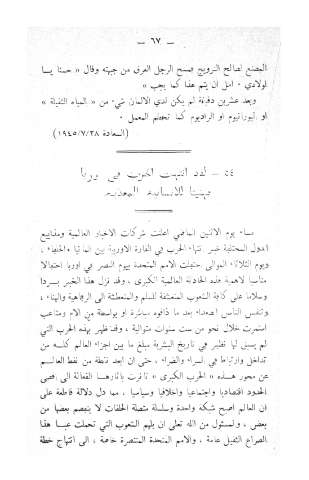 — ٦٧ —
المصنع لصالح النرويج مسح الرجل العرق من جبهته وقال « حسنا يا
اولادي ٠ امل ان يتم هذا كما يجب »
وبعد عشرين دقيقة لم يكن لدي الالمان شيء من « المياه الثقيلة »
او اليورانيوم او الراديوم كما تحطم المعمل ٠
(السعادة ١٩٤٥/٧/٢٨)
٥٤ – لقد انتهت الحرب في اوربا
فهنيئا للانسانية المعذبة
مساء يوم الاثنين الماضي اعلنت شركات الاخبار العالمية ومذاييع
الدول المختلفة خبر انتهاء الحرب في القارة الاوربية بين المانيا والحلفاء ٠
ويوم الثلاثاء الموالي احتفلت الامم المتحدة بيوم النصر في اوربا احتفالا
مناسبا لاهمية هذه الحادثة العالمية الكبرى، وقد نزل هذا الخبر بردا
وسلاما على كافة الشعوب المتعشقة للسلم والمتعطشة الى الرفاهية والهناء،
وتنفس الناس الصعداء بعد ما ذاقوه مباشرة او بواسطة من الام ومتاعب
استمرت خلال نحو من ست سنوات متوالية ، وقد ظهر بهذه الحرب التي
لم يسبق لها نظير في تاريخ البشرية مبلغ ما بين اجزاء العالم كله من
تداخل وارتباط في السراء والضراء ، حتى ان ابعد نقطة من نقط العالم
عن محور هذه « الحرب الكبرى » تاثرت باثارها الفعالة الى اقصى
الحدود اقتصاديا واجتماعيا واخلاقيا وسياسيا ، مما دل دلالة قاطعة على
ان العالم اصبح شبكة واحدة وسلسلة متصلة الحلقات لا ينفصم بعضها من
بعض ، والمسئول من الله تعلى ان يلهم الشعوب التي تحملت عبء هذا
الصراع الثقيل عامة ، والامم المتحدة المنتصرة خاصة ، الى انتهاج خطة